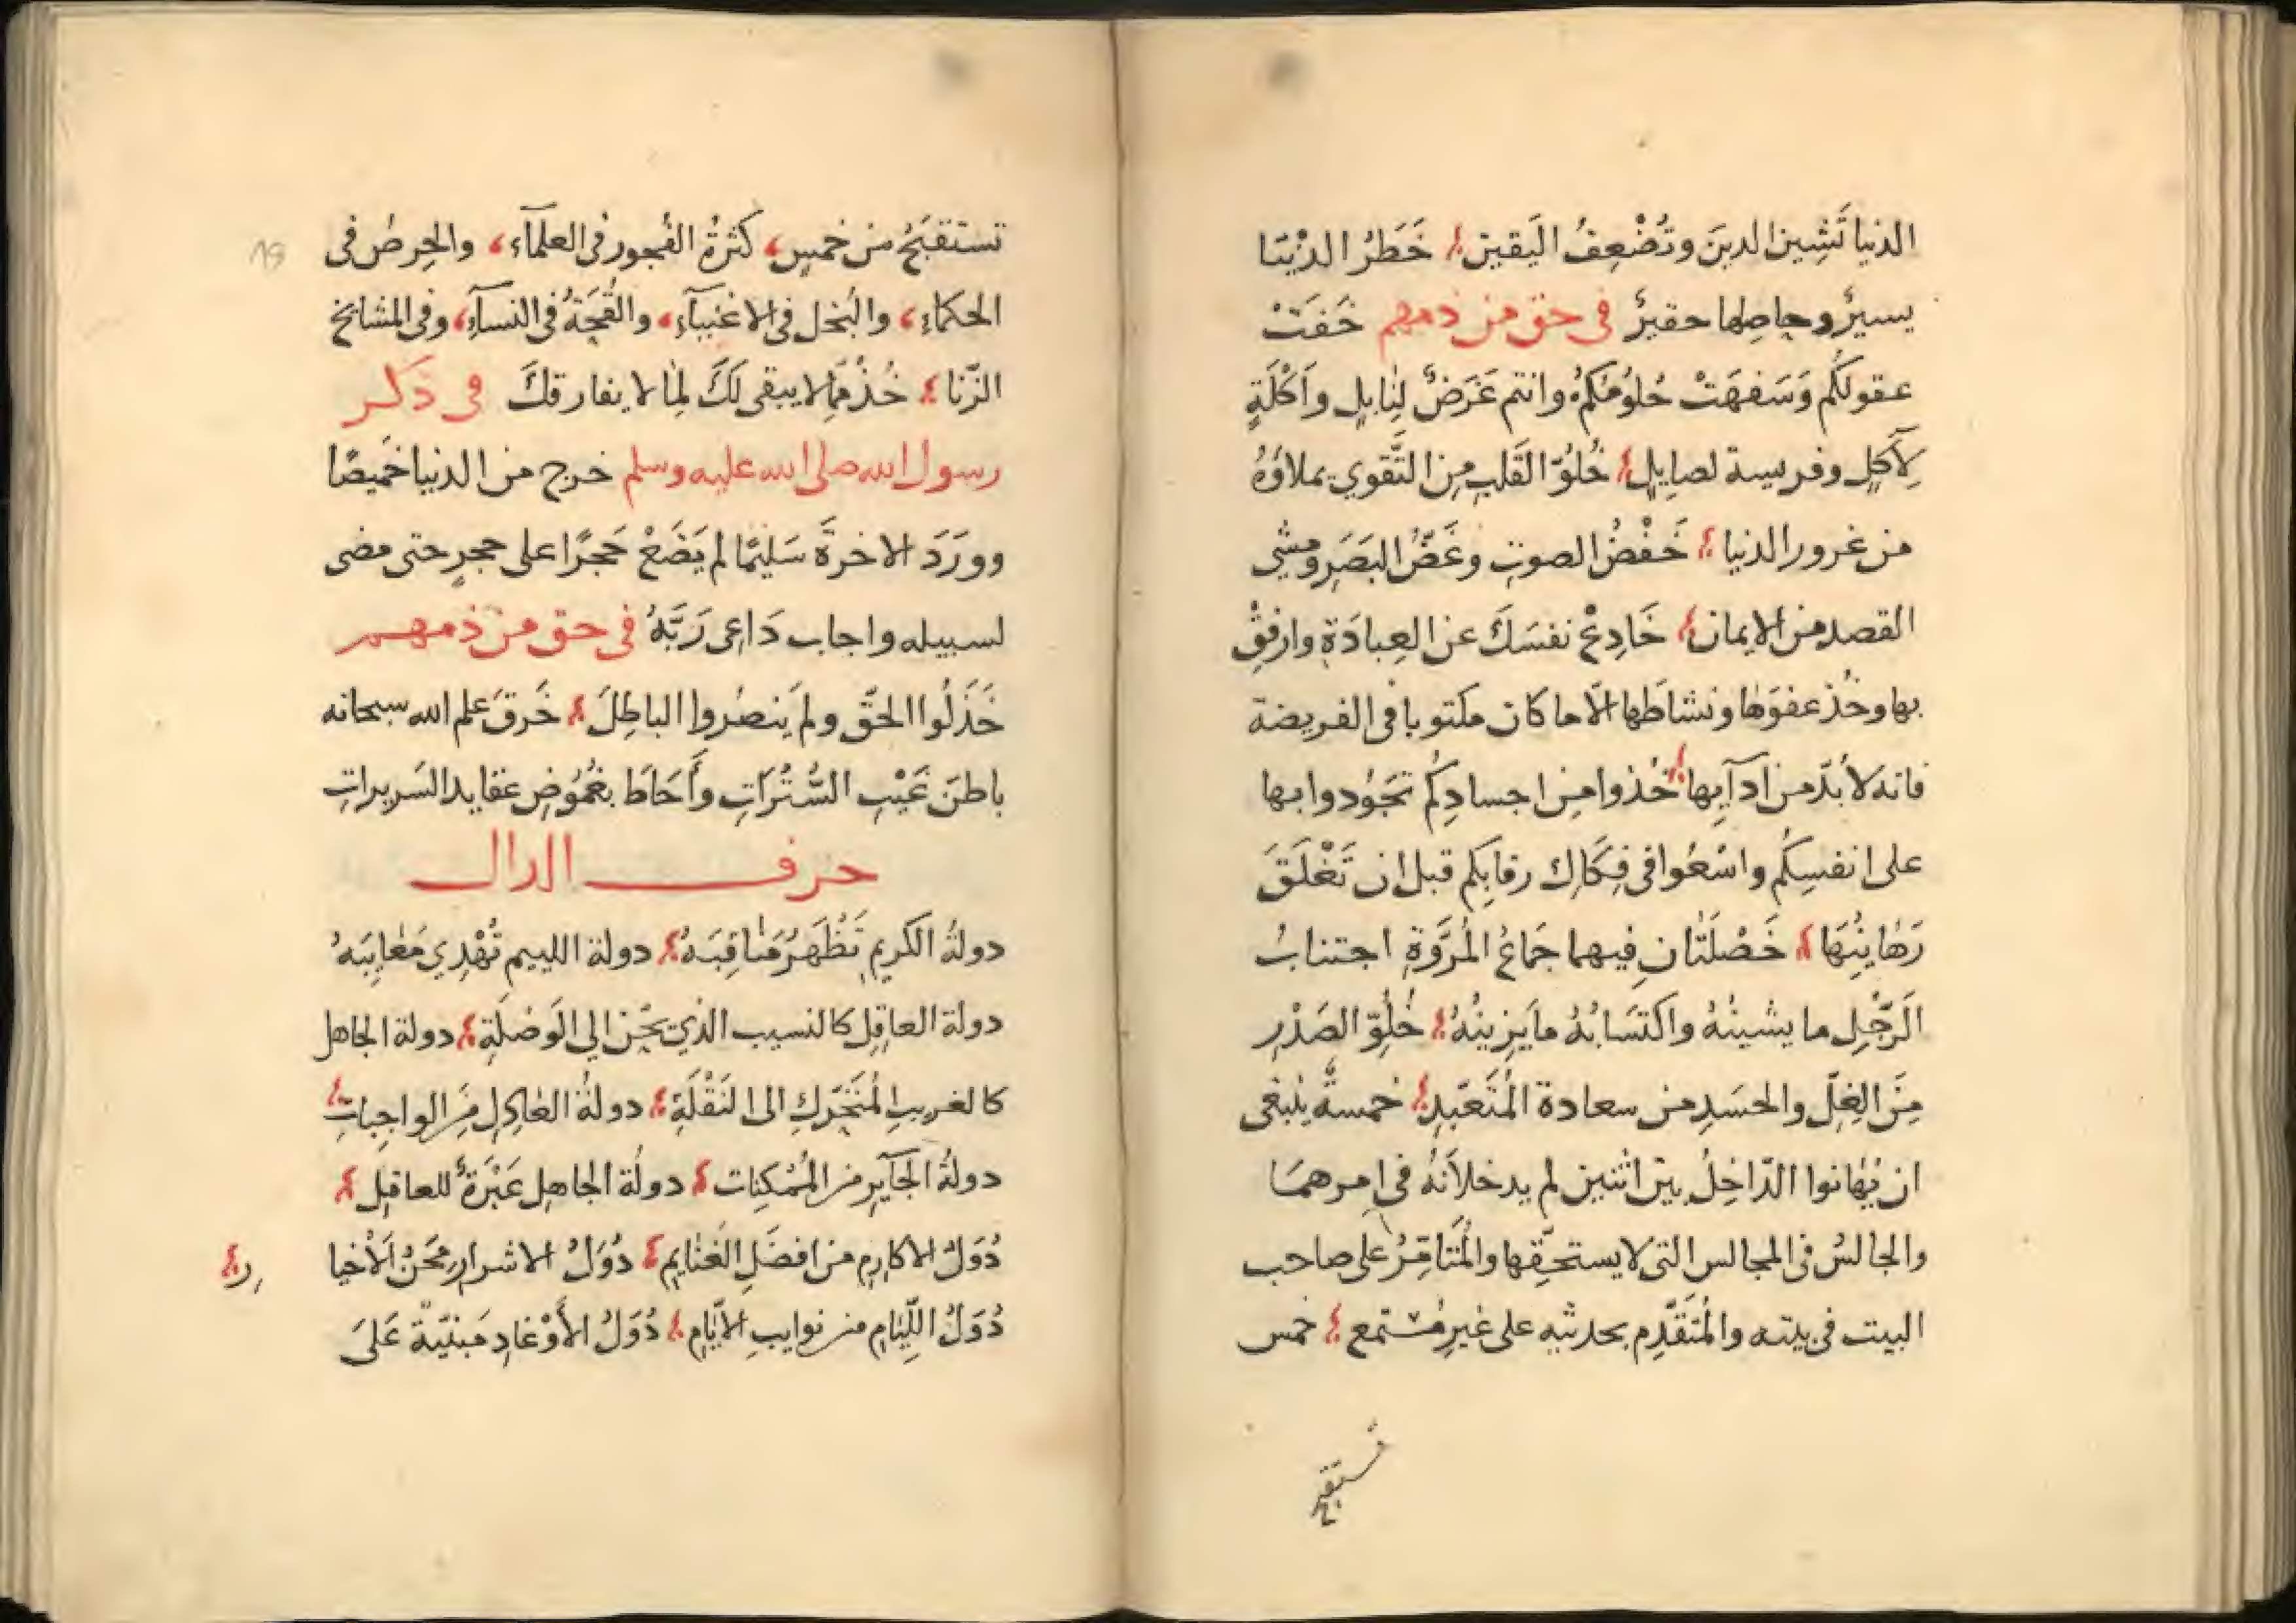 الدنيا تَشِين الدينَ وتُضْعِفُ اليَقين خَطَرُ الدنْيَا
يسيرٌ وحاصِلها حقيرٌ في حق من ذمهم خَفَتْ
عقولكُم وَسَفِهَتْ حُلُومُكُمْ وانتم غَرَضٌ لِنابِلٍ واَكْلَةٍ
لِآكِلٍ وفريسة لصايِلٍ خُلُوّ القَلبِ مِن التَّقوي يملاؤهُ
من غرور الدنيا خَفْضُ الصوتِ وغَضُّ البَصَرِ ومشي
القصد من الايمان خَادِعْ نفسَكَ عن العِبادَةِ وارفقْ
بها وخُذ عفوَها ونشاطَها الّا ما كان مكتوبا في الفريضة
فانه لا بُدّ من ادآيِها خُذوا مِن اجسادِكُم تَجُودوا بها
على انفسِكُم واسْعَوا في فِكَاكِ رقابِكم قبل ان تَغْلَقَ
رَهَاينُهَا خَصْلَتَانِ فيهما جَمَاعُ المُرَوَّةِ اجتنابُ
الَرّجُلِ ما يشينُهُ واكتسَابُهُ ما يَزِينُهُ خُلُوّ الصَدْرِ
مِنَ الغِلّ والحسَدِ من سعادة المُتَعَبّدِ خمسةٌ ينبغى
ان يُهَانوا الدّاخِلُ بين اثنين لم يدخلاَنهُ في امرهمَا
والجالسُ في المجالس التى لا يستحِقّها والمُتَامِّرُ على صاحب
البيت في بيته والمُتَقَدِّم بحديثه على غيرِ مُستمع خمس
تستقبح
تستقبَحُ من خمسٍ، كثرةُ الفُجور في العلمآء، والحِرصُ في
الحكماءِ، والبُخل في الاغنيآءِ، والقُحَةُ في النسآءِ، وفي المشايخ
الزّنا خُذْ مِمّا لا يبقى لَكَ لِمَا لا يفارقكَ في ذكر
رسول الله صلى الله عليه وسلم خرج من الدنيا خَميصًا
ووَرَدَ الاخرةَ سَليمًا لم يَضَعْ حَجرًا على حجرٍ حتى مضى
لسبيله واجاب دَاعِى رَبَّهُ في حق من ذمهم
خَذَلُوا الحَقّ ولم يَنصُروا الباطِلَ خَرقَ علم الله سبحانه
باطنَ غَيْبِ السُّتُرَاتِ وأَحَاطَ بغُمُوضِ عقايد السَريراتِ
حرف الدال
دولةُ الكريمِ تُظْهَرُ مَنَاقِبَهُ دولة اللييم تُهْدِي مَعَايِبَهُ
دولة العاقِلِ كالنسيب الذي يَحِنّ الي الوَصْلَةِ دولة الجاهل
كالغريبِ المُتَحَرّكِ الى النَقْلَةِ دولةُ العَادِلِ مِنَ الواجِباتِ
دولةُ الجَآيرِ من المُمْكِنات دولَة الجاهِلِ عَبْرَةٌ للعاقِلِ
دُوَلُ الاكارِمِ من افضَلِ الغَنَايمِ دُوَلُ الاشرارِ مِحَنُ اَلاْخيا
رِ
دُوَلُ اللّيَامِ من نوايبِ الايَّامِ دُوَلُ الأَوْغادِ مَبنيّة عَلىَ